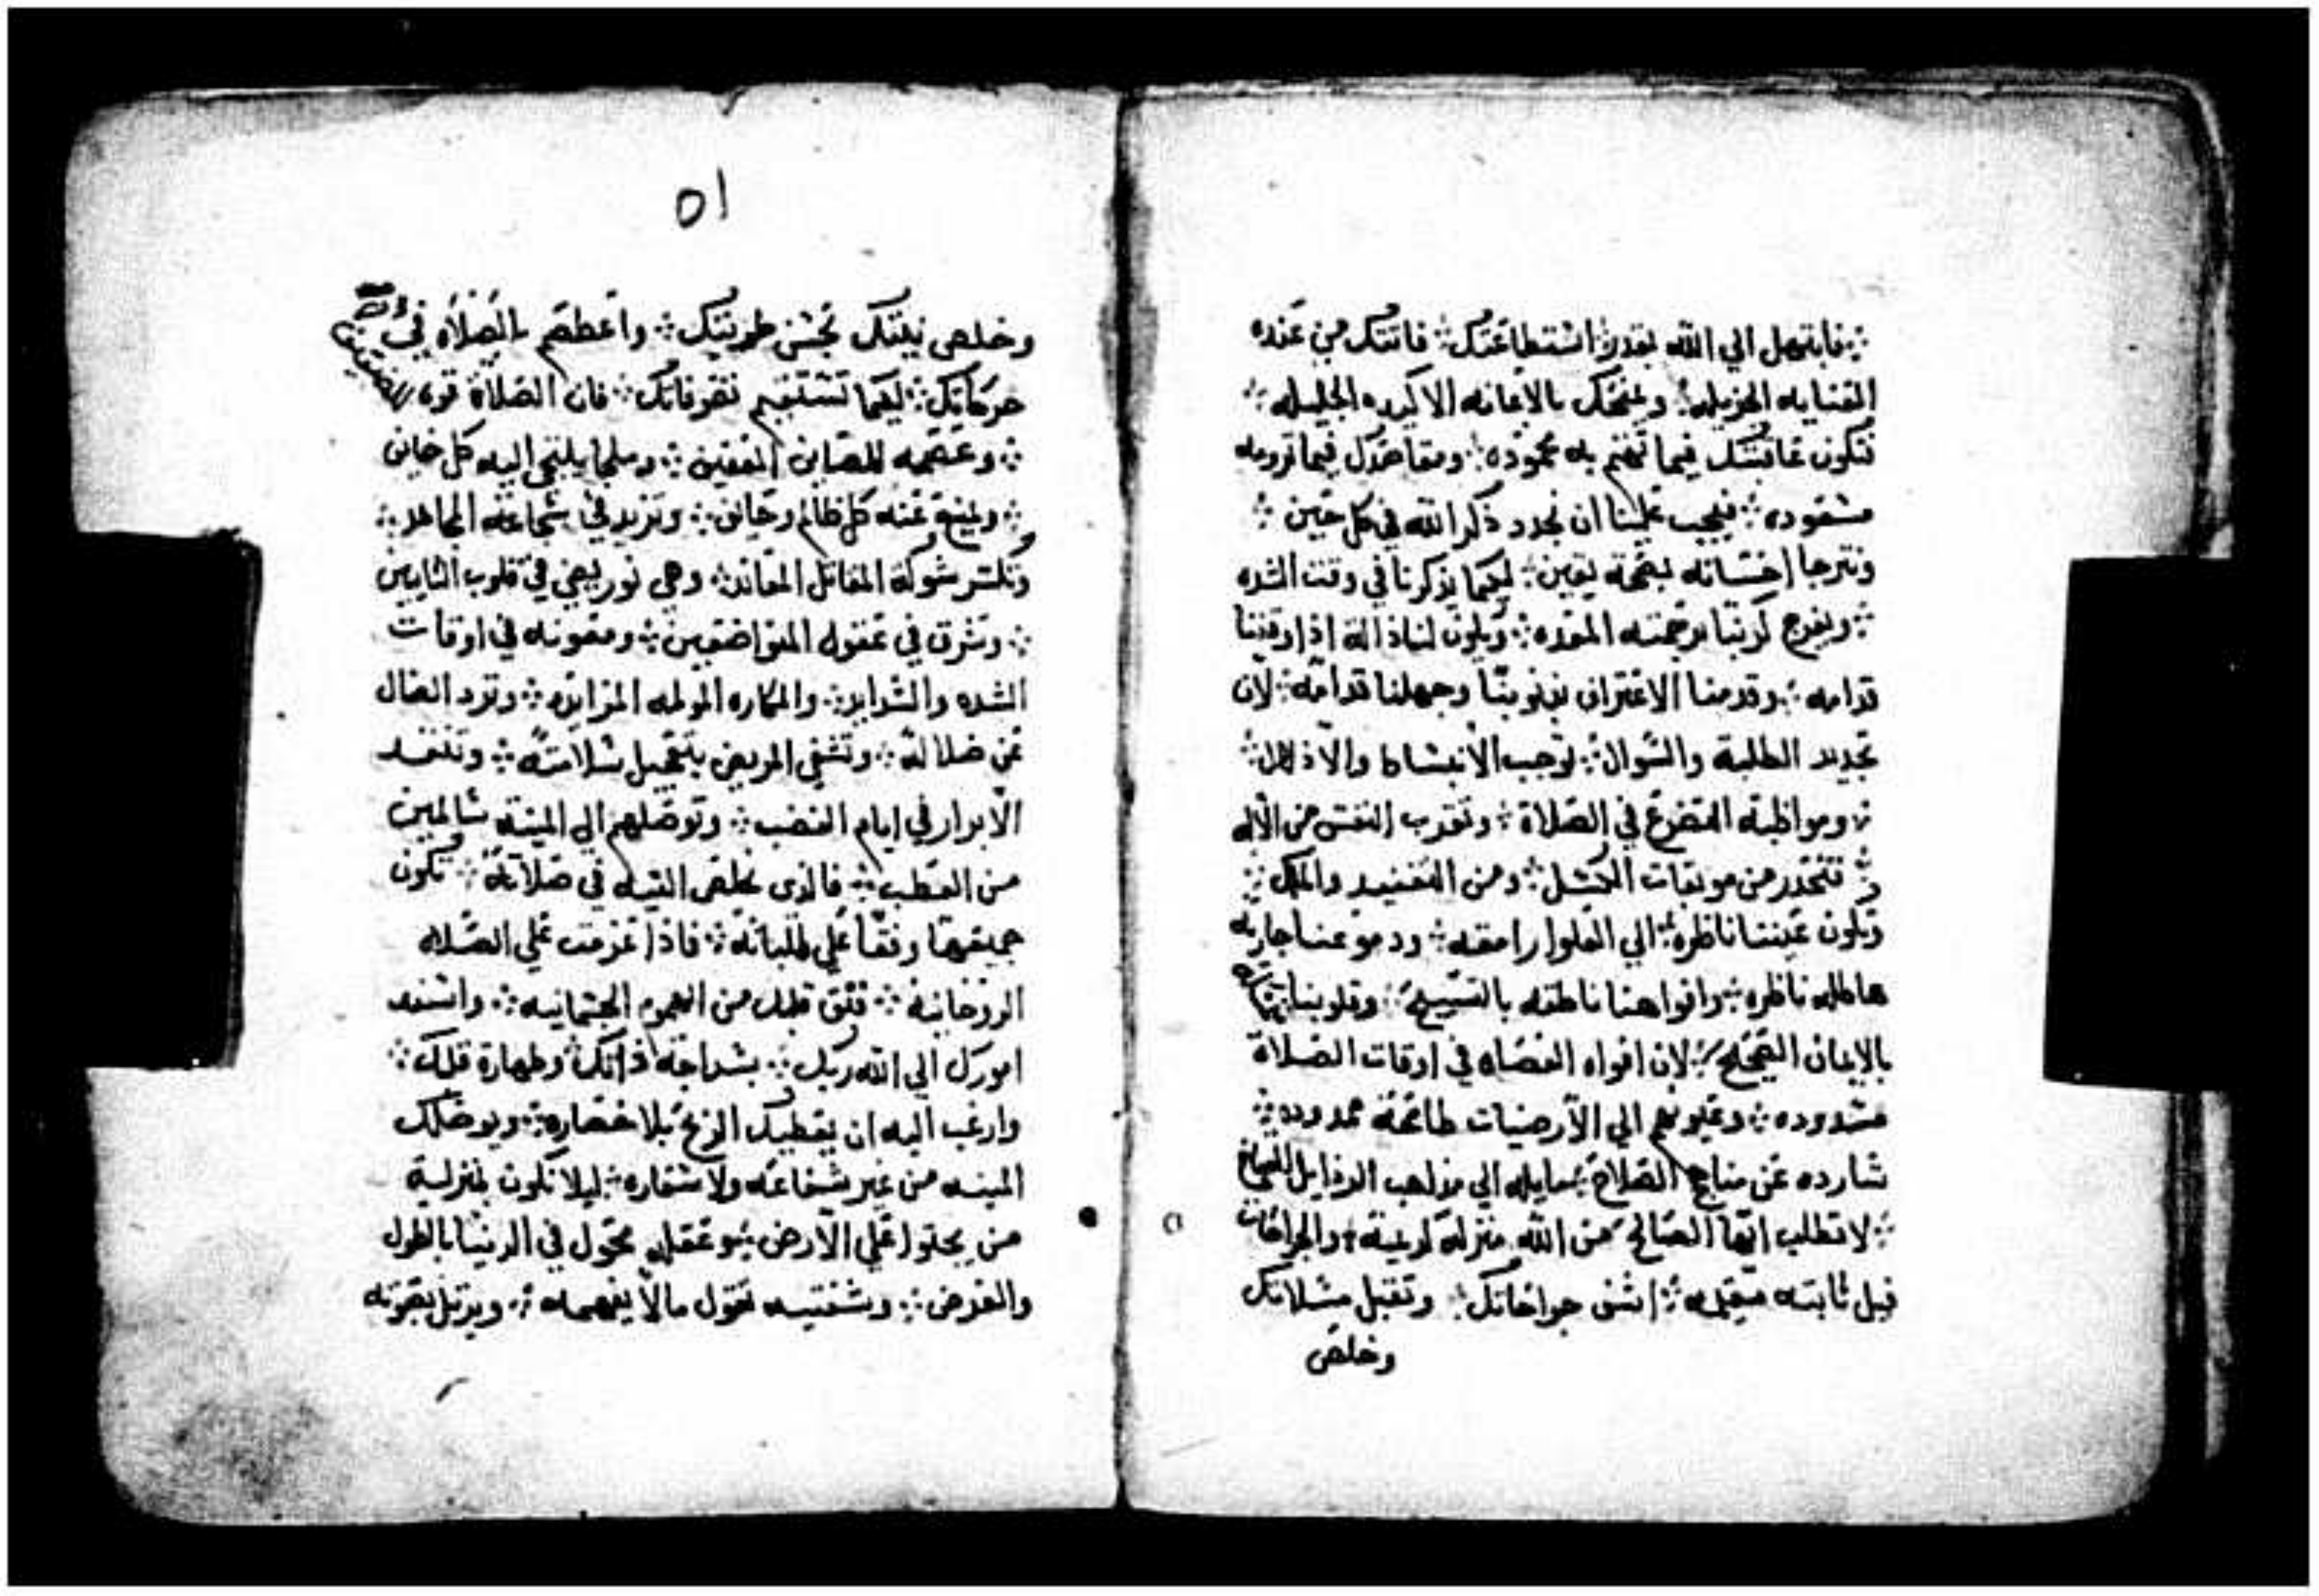 فابتهل الي الله بقدر استطاعتك فاتتك من عنده
العنايه الجزيله ويمنحك بالاعانه الاكيده الجليله
فتكون عاقبتك فيما تهتم به محموده ومقاصدك فيما ترومه
مسعوده فيجب علينا ان نجدد ذكر الله في كل حين
ونترجا احسانه بصحة يقين ليكما يذكرنا في وقت الشده
ويفرج كربتنا برحمته المعده ويكون لنا ذاله اذا وقفنا
قدامه وقدمنا الاعتراف بذنوبنا وجهلنا قدامه لان
تجديد الطلبة والسوال توجب الانبساط والادلال
ومواظبة التضرع في الصلاة وتقرب النفس من الاله
فتحدر من موبقات الكسل ومن التفنيد والملل
وتكون عيننا ناظره الي العلوا رامقه ودموعنا جاريه
هاطله ناظره وافواهنا ناطقه بالتسبيح وقلوبنا
بالايمان الصحيح لان افواه العصاه في اوقات الصلاة
مسدوده وعيونهم الي الارضيات طامحه ممدوده
شارده عن مناهج الصلاح مايله الي مذاهب الرذايل القباح
لا تطلب ايها الصالح من الله منزله لوعينة والجراحات
فيك ثابته مقيمه اشف جراحاتك وتقبل مسلاتك
وخلص
٥١
وخلص نيتك بحسن طويتك واعطهم بالصلاه في
حركاتك ليكما تستقيم تصرفاتك فان الصلاة قوه للضعيفين
وعصمه للصابرين المعفين وملجا يلتجي اليه كل خايف
ويمنع عنه كل ظالم وحايف وتزيد في شجاعة المجاهد
وتكسر شوكة المقاتل المعاند وهي نور يضي في قلوب التايبين
وتشرق في عقول المتواضعين ومعونه في اوقات
الشده والشدايد والمكاره المولمه المزايده وترد الضال
عن ضلاله وتشفي المريض بتعجيل سلامته وتنقد
الابرار في ايام الغضب وتوصلهم الي المينه سالمين
من العطب فالذي يخلص النيه في صلاته تكون
جميعها وقفا علي طلباته فاذا عزمت علي الصلاه
الروحانيه فنق قلبك من الهموم الجسمانيه واسند
امورك الي الله ربك بسداجة ذاتك وطهارة قلبك
وارغب اليه ان يعطيك الربح بلا خساره ويوصلك
المينه من غير شفاعه ولا سفاره ليلا تكون بمنزلة
من يجلوا علي الارض وعقله يجول في الدنيا بالطول
والعرض وبشفتيه تقول مالا يفهمه ويرتل بصوته